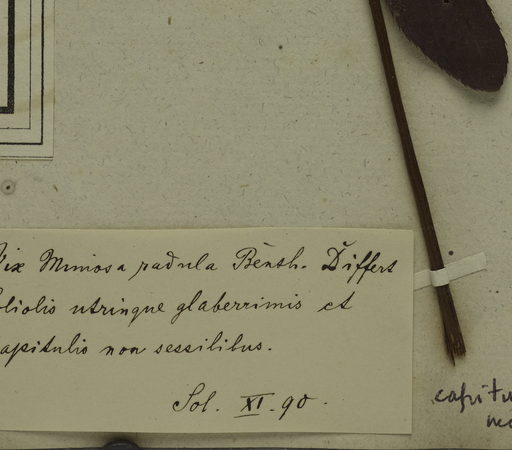 Vix Mimosa radula Benth. Differt
foliolis utrinque glaberrimis et
capitulis non sessilibus.
Sol. XI. 90.